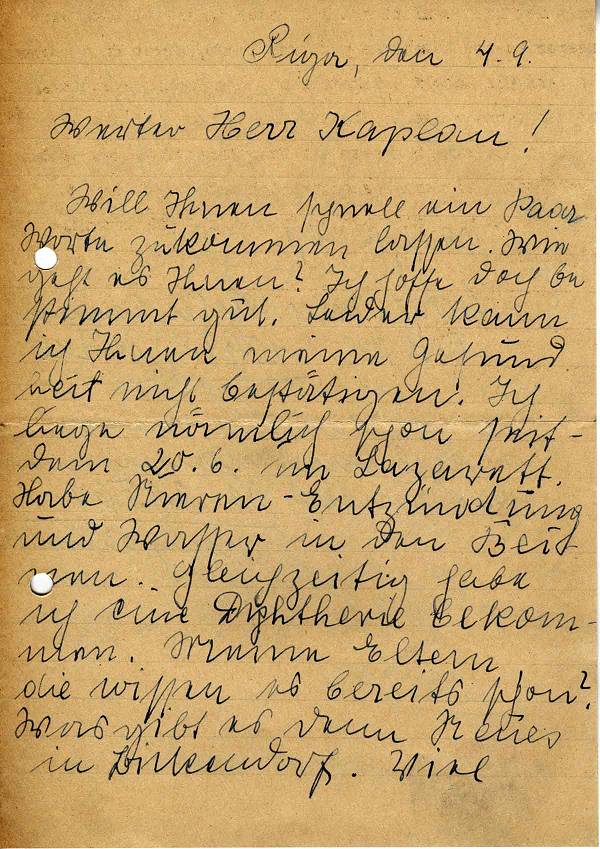 Riga, den 4.9.
Werter Herr Kaplan!
Will Ihnen schnell ein Paar
Worte zukommen lassen. Wie
geht es Ihnen? Ich hoffe doch be
stimmt gut. Leider kann
ich Ihnen meine Gesund
heit nicht bestätigen. Ich
liege nämlich schon seit-
dem 20.6. im Lazarett.
Habe Nieren-Entzündung
und Wasser in den Bei
nen. Gleichzeitig habe
ich eine Diphtherie bekom-
men. Meine Eltern
die wissen es bereits schon?
Was gibt es denn Neues
in Birkendorf. Viel